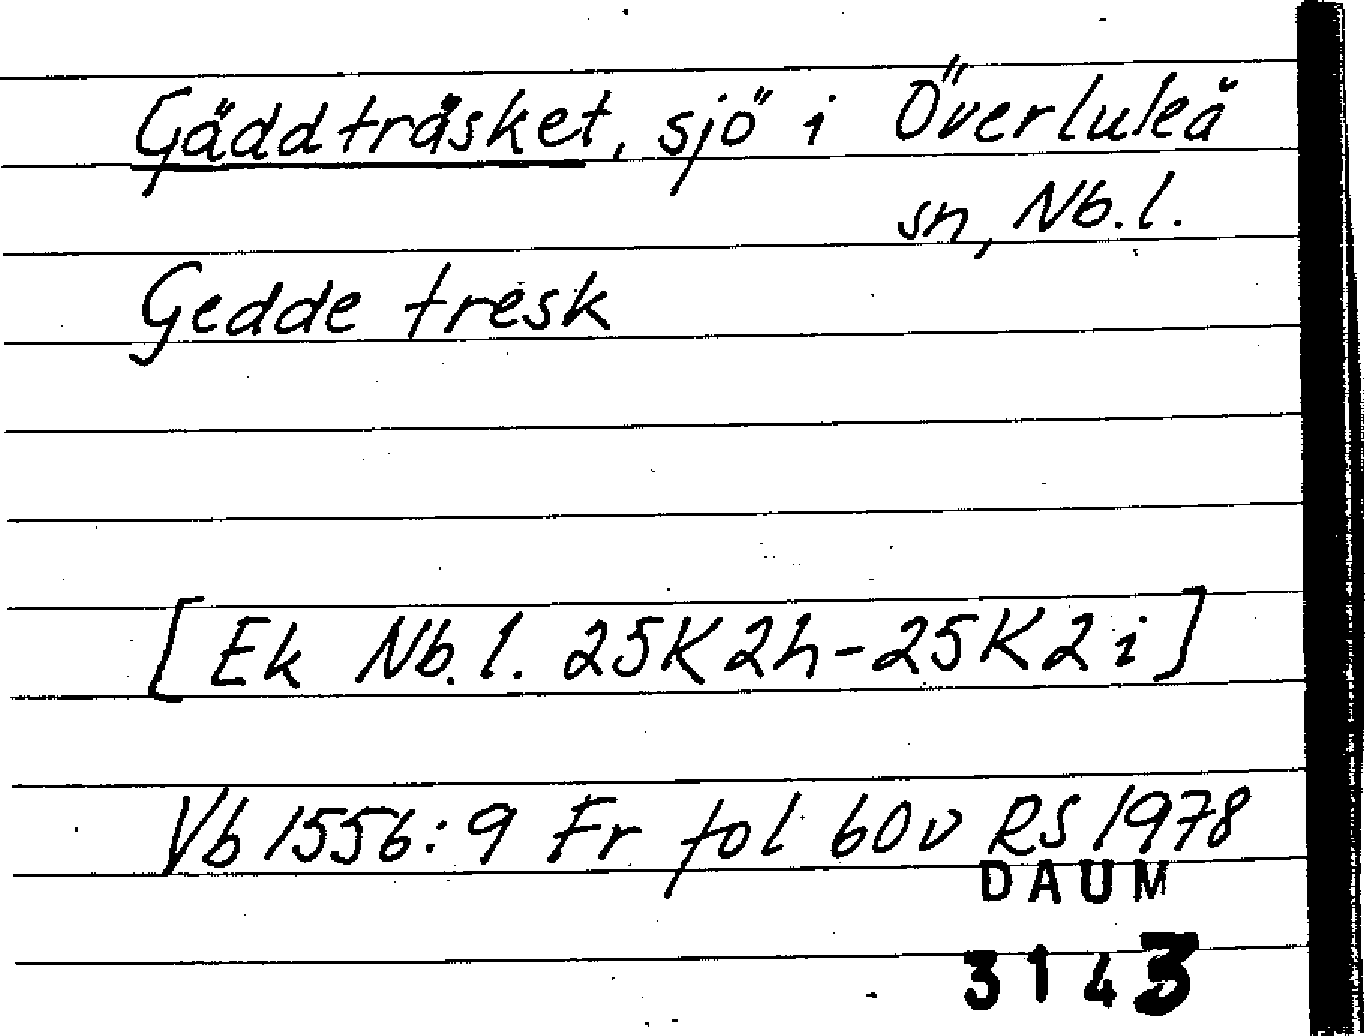 Gäddträsket, sjö i Överluleå
sn, Nb.l.
Gedde tresk
[Ek Nb.l. 25K2h-25K2i]
Vb 1556:9 Fr fol 60v RS 1978
DAUM
3143